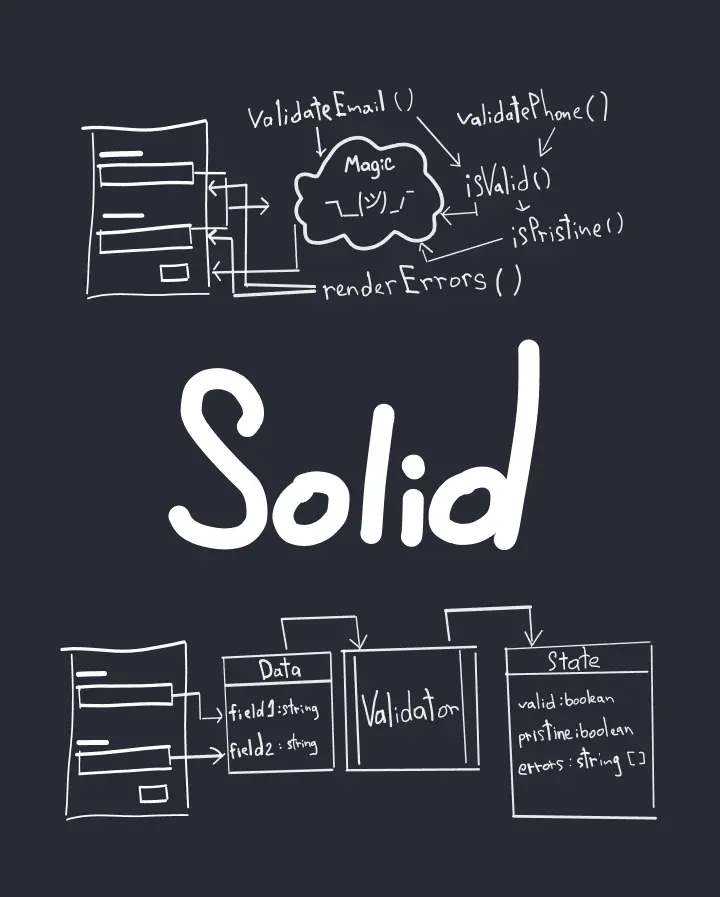 validateEmail()
validatePhone()
Magic
¯\_(ツ)_/¯
isValid()
isPristine()
renderErrors()
Solid
Data
field1:string
field2: string
Validator
State
valid:boolean
pristine:boolean
errors: string []